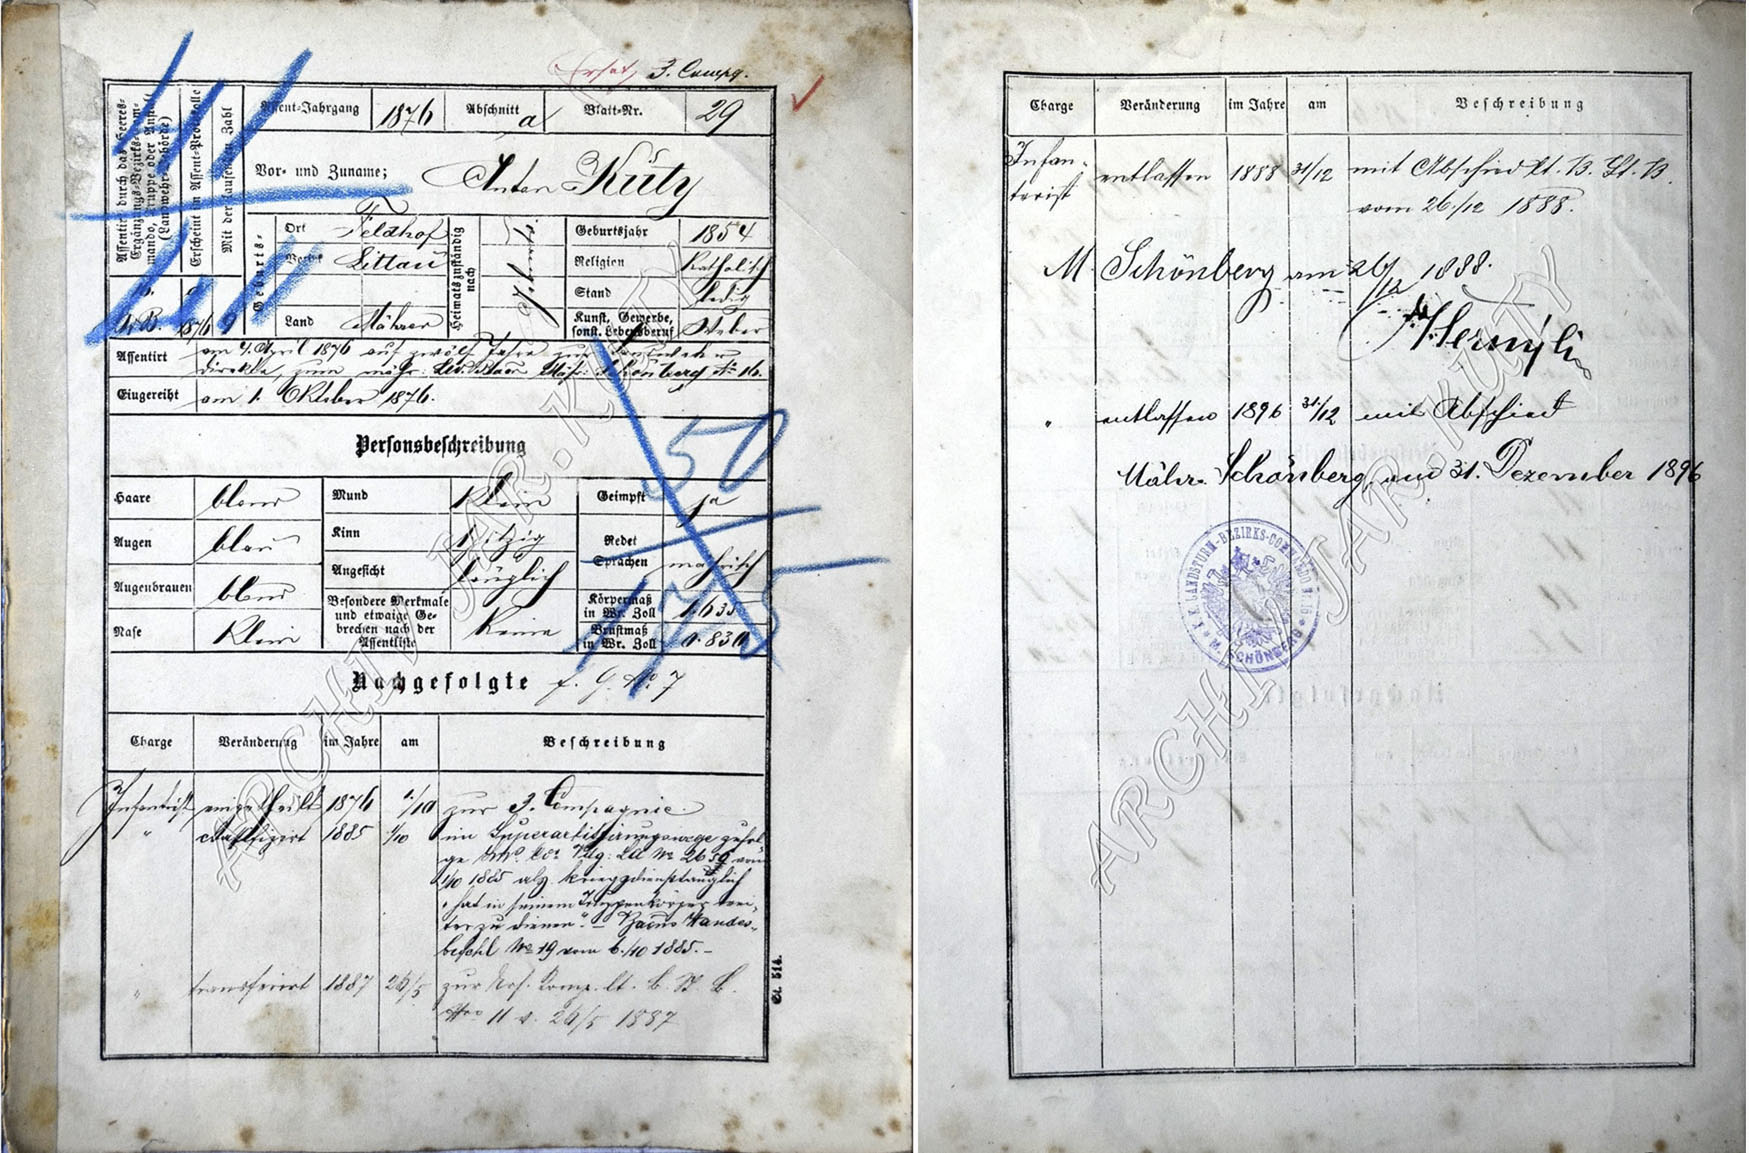 3. Compg.
Assent-Jahrgang 1876 Abschnitt a Blatt-Nr. 29
Assentirt durch das Heeres-
Ergänzungs-Bezirks-Com-
mando, Truppe oder Anstalt
(Landwehr-Behörde)
Erscheint im Assent-Protokolle
Mit der laufenden Zahl
1876 9
Vor- und Zuname; Anton Kutý
Geburts-
Ort Feldhof
Bezirk Littau
Land Mähren
Heimatszuständig nach
Geburtsjahr 1854
Religion Katholisch
Stand ledig
Kunst, Gewerbe,
sonst. Lebensberuf Weber
Assentirt am 4. April 1876 auf zwölf Jahre zur Landwehr
direkte, zum mähr. Baon Mähr: Schönberg № 16.
Eingereiht am 1. Oktober 1876.
Personsbeschreibung
Haare blond Mund klein Geimpft ja
Augen blau Kinn spitzig Redet
Sprachen mährisch
Augenbrauen blond Angesicht länglich Körpermaß
in Wr. Zoll 1.635
Nase klein Besondere Merkmale
und etwaige Ge-
brechen nach der
Assentliste Keine Brustmaß
in Wr. Zoll
50
Nachgefolgte
Charge Veränderung im Jahre am Beschreibung
Infantrist eingetheilt 1876 1/10 zur 3. Compagnie.
" classifizirt 1885 1/10 im Superarbitrirungswege zufol-
ge № 2650 vom
1/10 1885 als kriegsdiensttauglich
"hat in seinem Truppenkörper wei-
ter zu dienen".
befehl № 19 vom 6./10 1885.-
" transferirt 1887 26/5 zur Res. Comp. lt. B. St. B.
Nro 11 v. 26/5 1887
St. 514.
Charge Veränderung im Jahre am Beschreibung
Infan-
terist entlassen 1888 31/12 mit Abschied lt. B. St. B.
vom 26./12 1888.
M. Schönberg am 26/12 1888.
" entlassen 1896 31/12 mit Abschied
Mähr. Schönberg, am 31. Dezember 1896
K.K. LANDSTURM-BEZIRKS-COMMANDO № 16
M. SCHÖNBERG
ARCHIV JAR. KUTÝ
ARCHIV JAR. KUTÝ